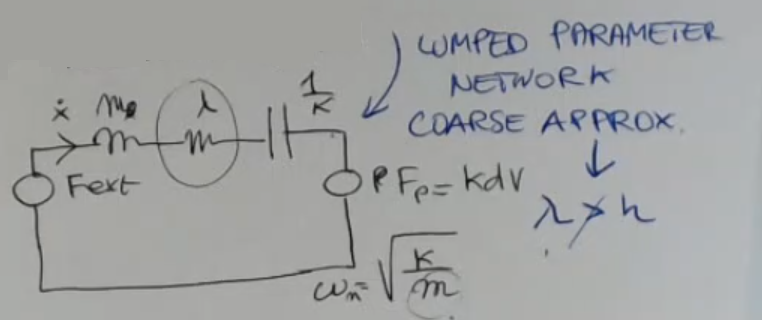 LUMPED PARAMETER
NETWORK
COARSE APPROX.
ẋ
1/K
Fext
F_P = KdV
λ ≯ h
ω_n = √(K/m)